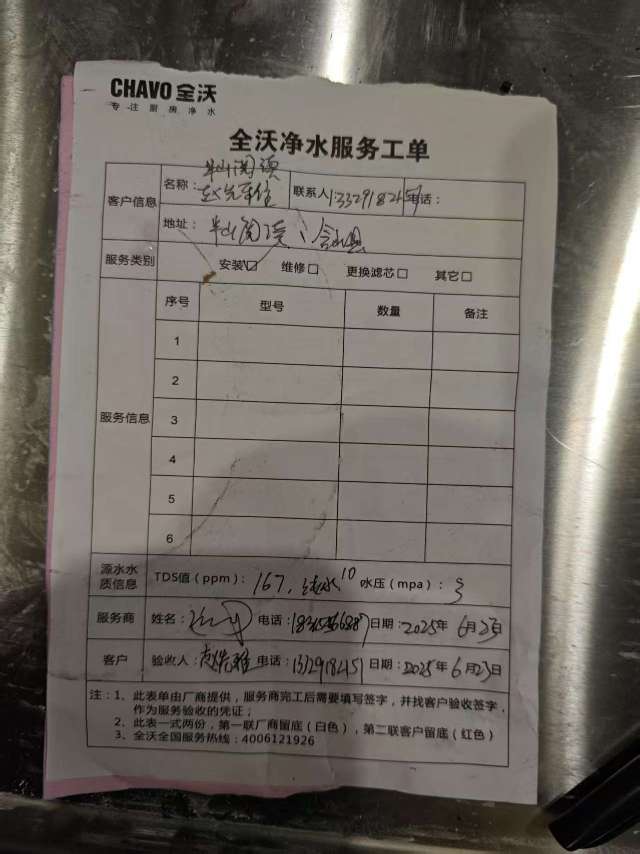 CHAVO 全沃
专·注厨房净水
全沃净水服务工单
客户信息 名称： 联系人 电话：
地址：
服务类别 安装☑ 维修□ 更换滤芯□ 其它□
服务信息 序号 型号 数量 备注
1
2
3
4
5
6
源水水质信息 TDS值（ppm）：167，纯水10 水压（mpa）：3
服务商 姓名： 电话： 日期：2025年6月23日
客户 验收人： 电话： 日期：2025年6月23日
注：1、此表单由厂商提供，服务商完工后需要填写签字，并找客户验收签字，
作为服务验收的凭证；
2、此表一式两份，第一联厂商留底（白色），第二联客户留底（红色）
3、全沃全国服务热线：4006121926